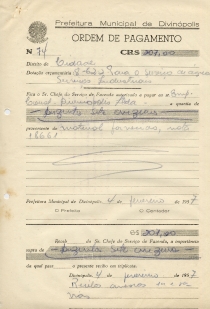 Prefeitura Municipal de Divinópolis
ORDEM DE PAGAMENTO
N 74 CR$ 207,00
Distrito de Cidade
Dotação orçamentária
Serviços Industriais
Fica o Sr. Chefe do Serviço de Fazenda autorizado a pagar ao sr.
a quantia de
duzentos sete cruzeiros
proveniente de material fornecido, nota
Prefeitura Municipal de Divinópolis, 4 de fevereiro de 1957
O Prefeito O Contador
CR$ 207,00
Recebi do Sr. Chefe do Serviço de Fazenda, a importância
supra de duzentos sete cruzeiros
da qual passo o presente recibo em triplicata.
Divinópolis, 4 de fevereiro de 1957